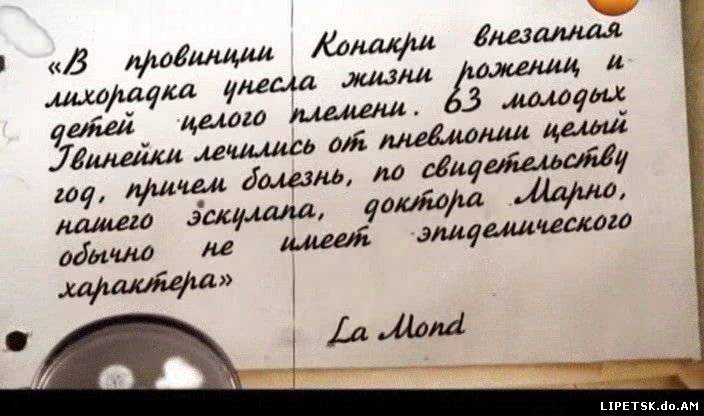 «В провинции Конакри внезапная
лихорадка унесла жизни рожениц и
детей целого племени. 63 молодых
Гвинейки лечились от пневмонии целый
год, причем болезнь, по свидетельству
нашего эскулапа, доктора Марно,
обычно не имеет эпидемического
характера»
La Mond
LIPETSK.do.AM